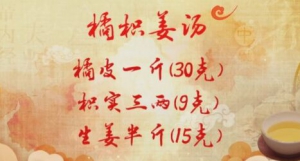 橘枳姜汤
橘皮一斤(30克)
枳实三两(9克)
生姜半斤(15克)